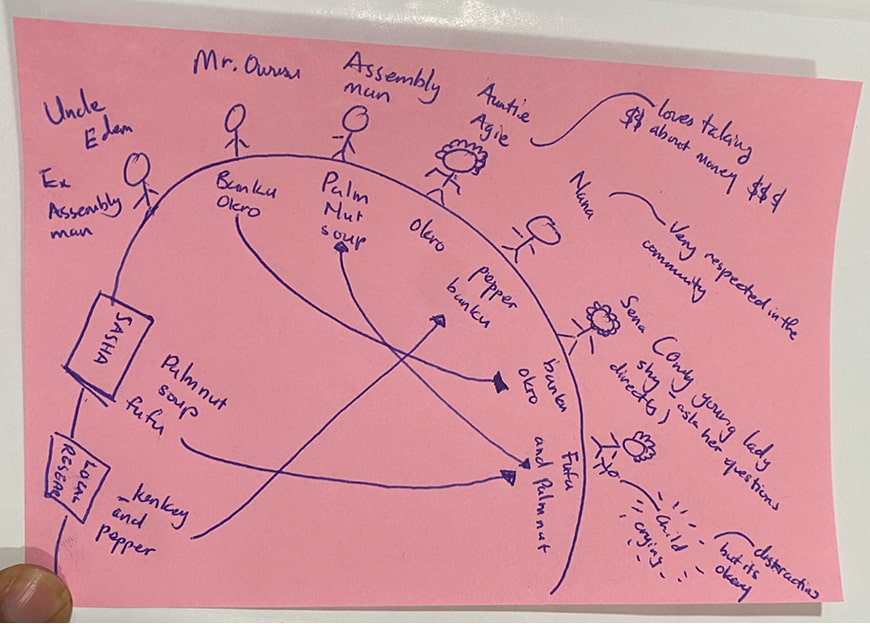 Uncle
Edem
Ex
Assembly
man
Mr. Owusu
Assembly
man
Auntie
Agie
loves talking
$$ about money $$$
Nana
Very respected in the
community
Sena
young lady
shy - ask her questions
directly)
child
crying
distracting
but its
okay
Banku
Okro
Palm
Nut
soup
Okro
pepper
banku
banku
okro
Fufu
and Palmnut
SASHA
Palmnut
soup
fufu
LOCAL
- kenkey
and
pepper